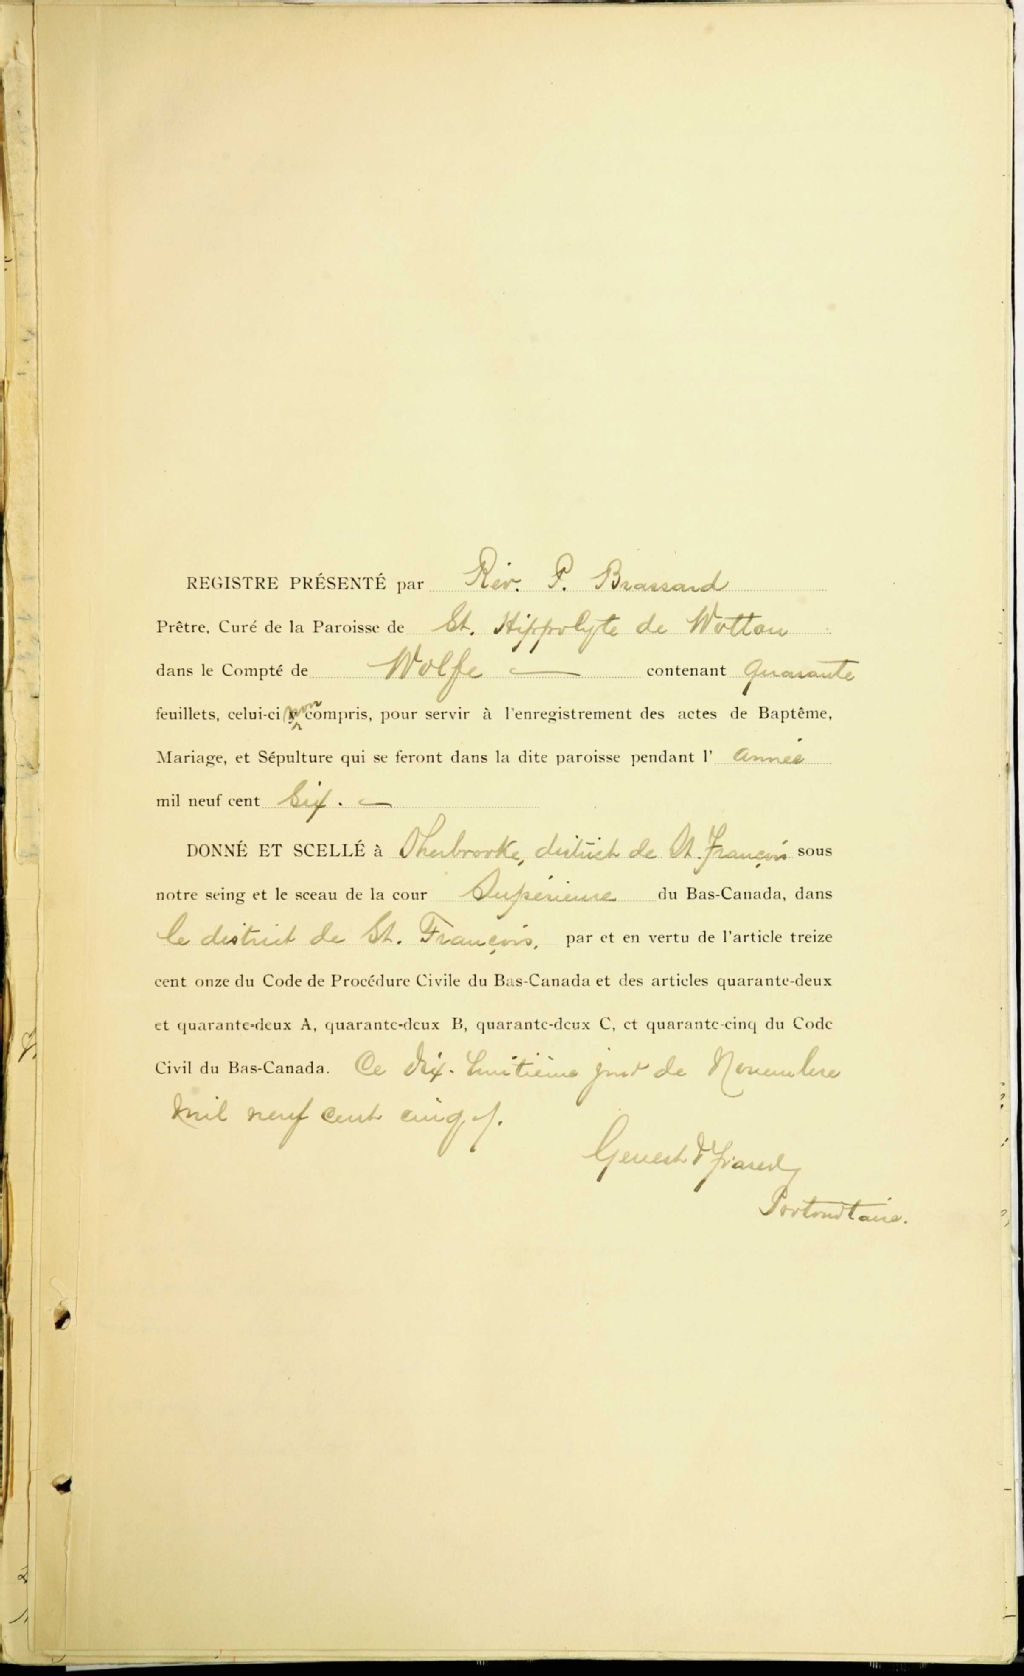 REGISTRE PRÉSENTÉ par Rév. P. Brassard
Prêtre, Curé de la Paroisse de St. Hippolyte de Wotton
dans le Compté de Wolfe — contenant quarante
feuillets, celui-ci non compris, pour servir à l'enregistrement des actes de Baptême,
Mariage, et Sépulture qui se feront dans la dite paroisse pendant l' année
mil neuf cent six. —
DONNÉ ET SCELLÉ à Sherbrooke, district de St. François sous
notre seing et le sceau de la cour Supérieure du Bas-Canada, dans
le district de St. François, par et en vertu de l'article treize
cent onze du Code de Procédure Civile du Bas-Canada et des articles quarante-deux
et quarante-deux A, quarante-deux B, quarante-deux C, et quarante-cinq du Code
Civil du Bas-Canada. Ce dix-huitième jour de Novembre
mil neuf cent cinq
Protonotaire.